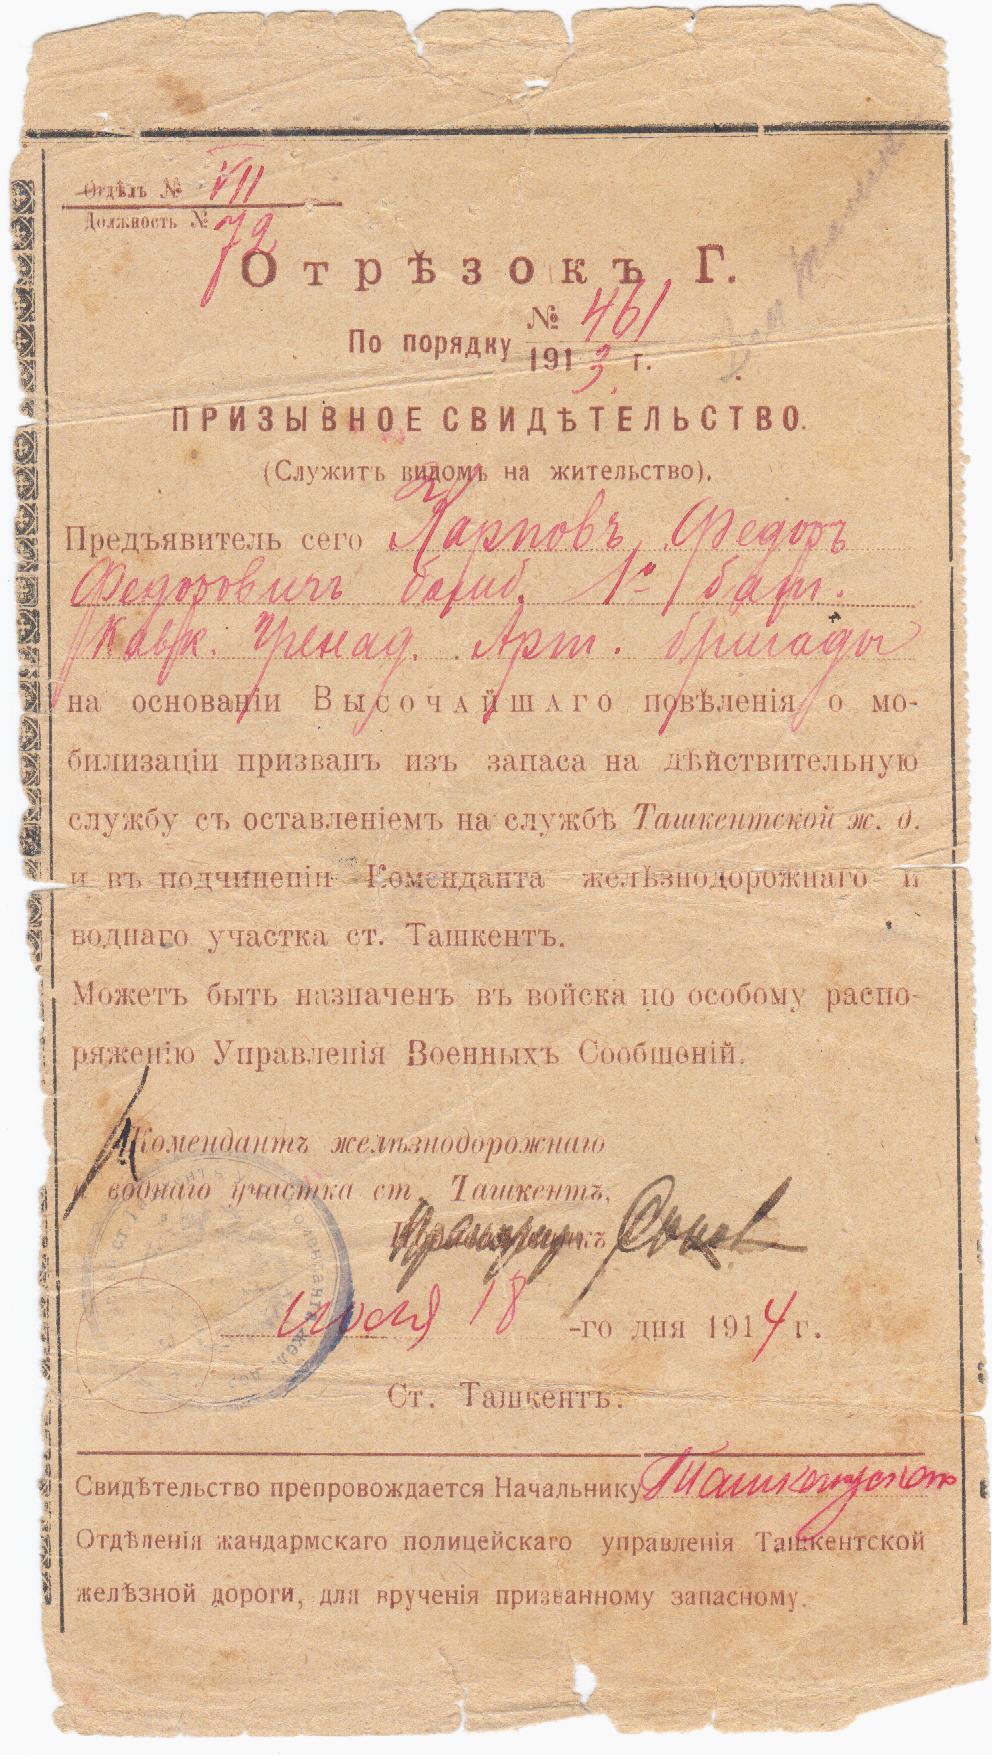 Отдѣлъ № VII
Должность № 72
Отрѣзокъ Г.
По порядку № 461
1913 г.
ПРИЗЫВНОЕ СВИДѢТЕЛЬСТВО.
(Служитъ видомъ на жительство).
Предъявитель сего Карповъ Федоръ
Федоровичъ бомб. 1й бат.
Кавк. Гренад. Арт. бригады
на основаніи ВЫСОЧАЙШАГО повѣленія о мо-
билизаціи призванъ изъ запаса на дѣйствительную
службу съ оставленіемъ на службѣ Ташкентской ж. д.
и въ подчиненіи Коменданта желѣзнодорожнаго и
воднаго участка ст. Ташкентъ.
Можетъ быть назначенъ въ войска по особому распо-
ряженію Управленія Военныхъ Сообщеній.
Комендантъ желѣзнодорожнаго
и воднаго участка ст. Ташкентъ,
июля 18 -го дня 1914 г.
Ст. Ташкентъ.
Свидѣтельство препровождается Начальнику Ташкентскаго
Отдѣленія жандармскаго полицейскаго управленія Ташкентской
желѣзной дороги, для врученія призванному запасному.